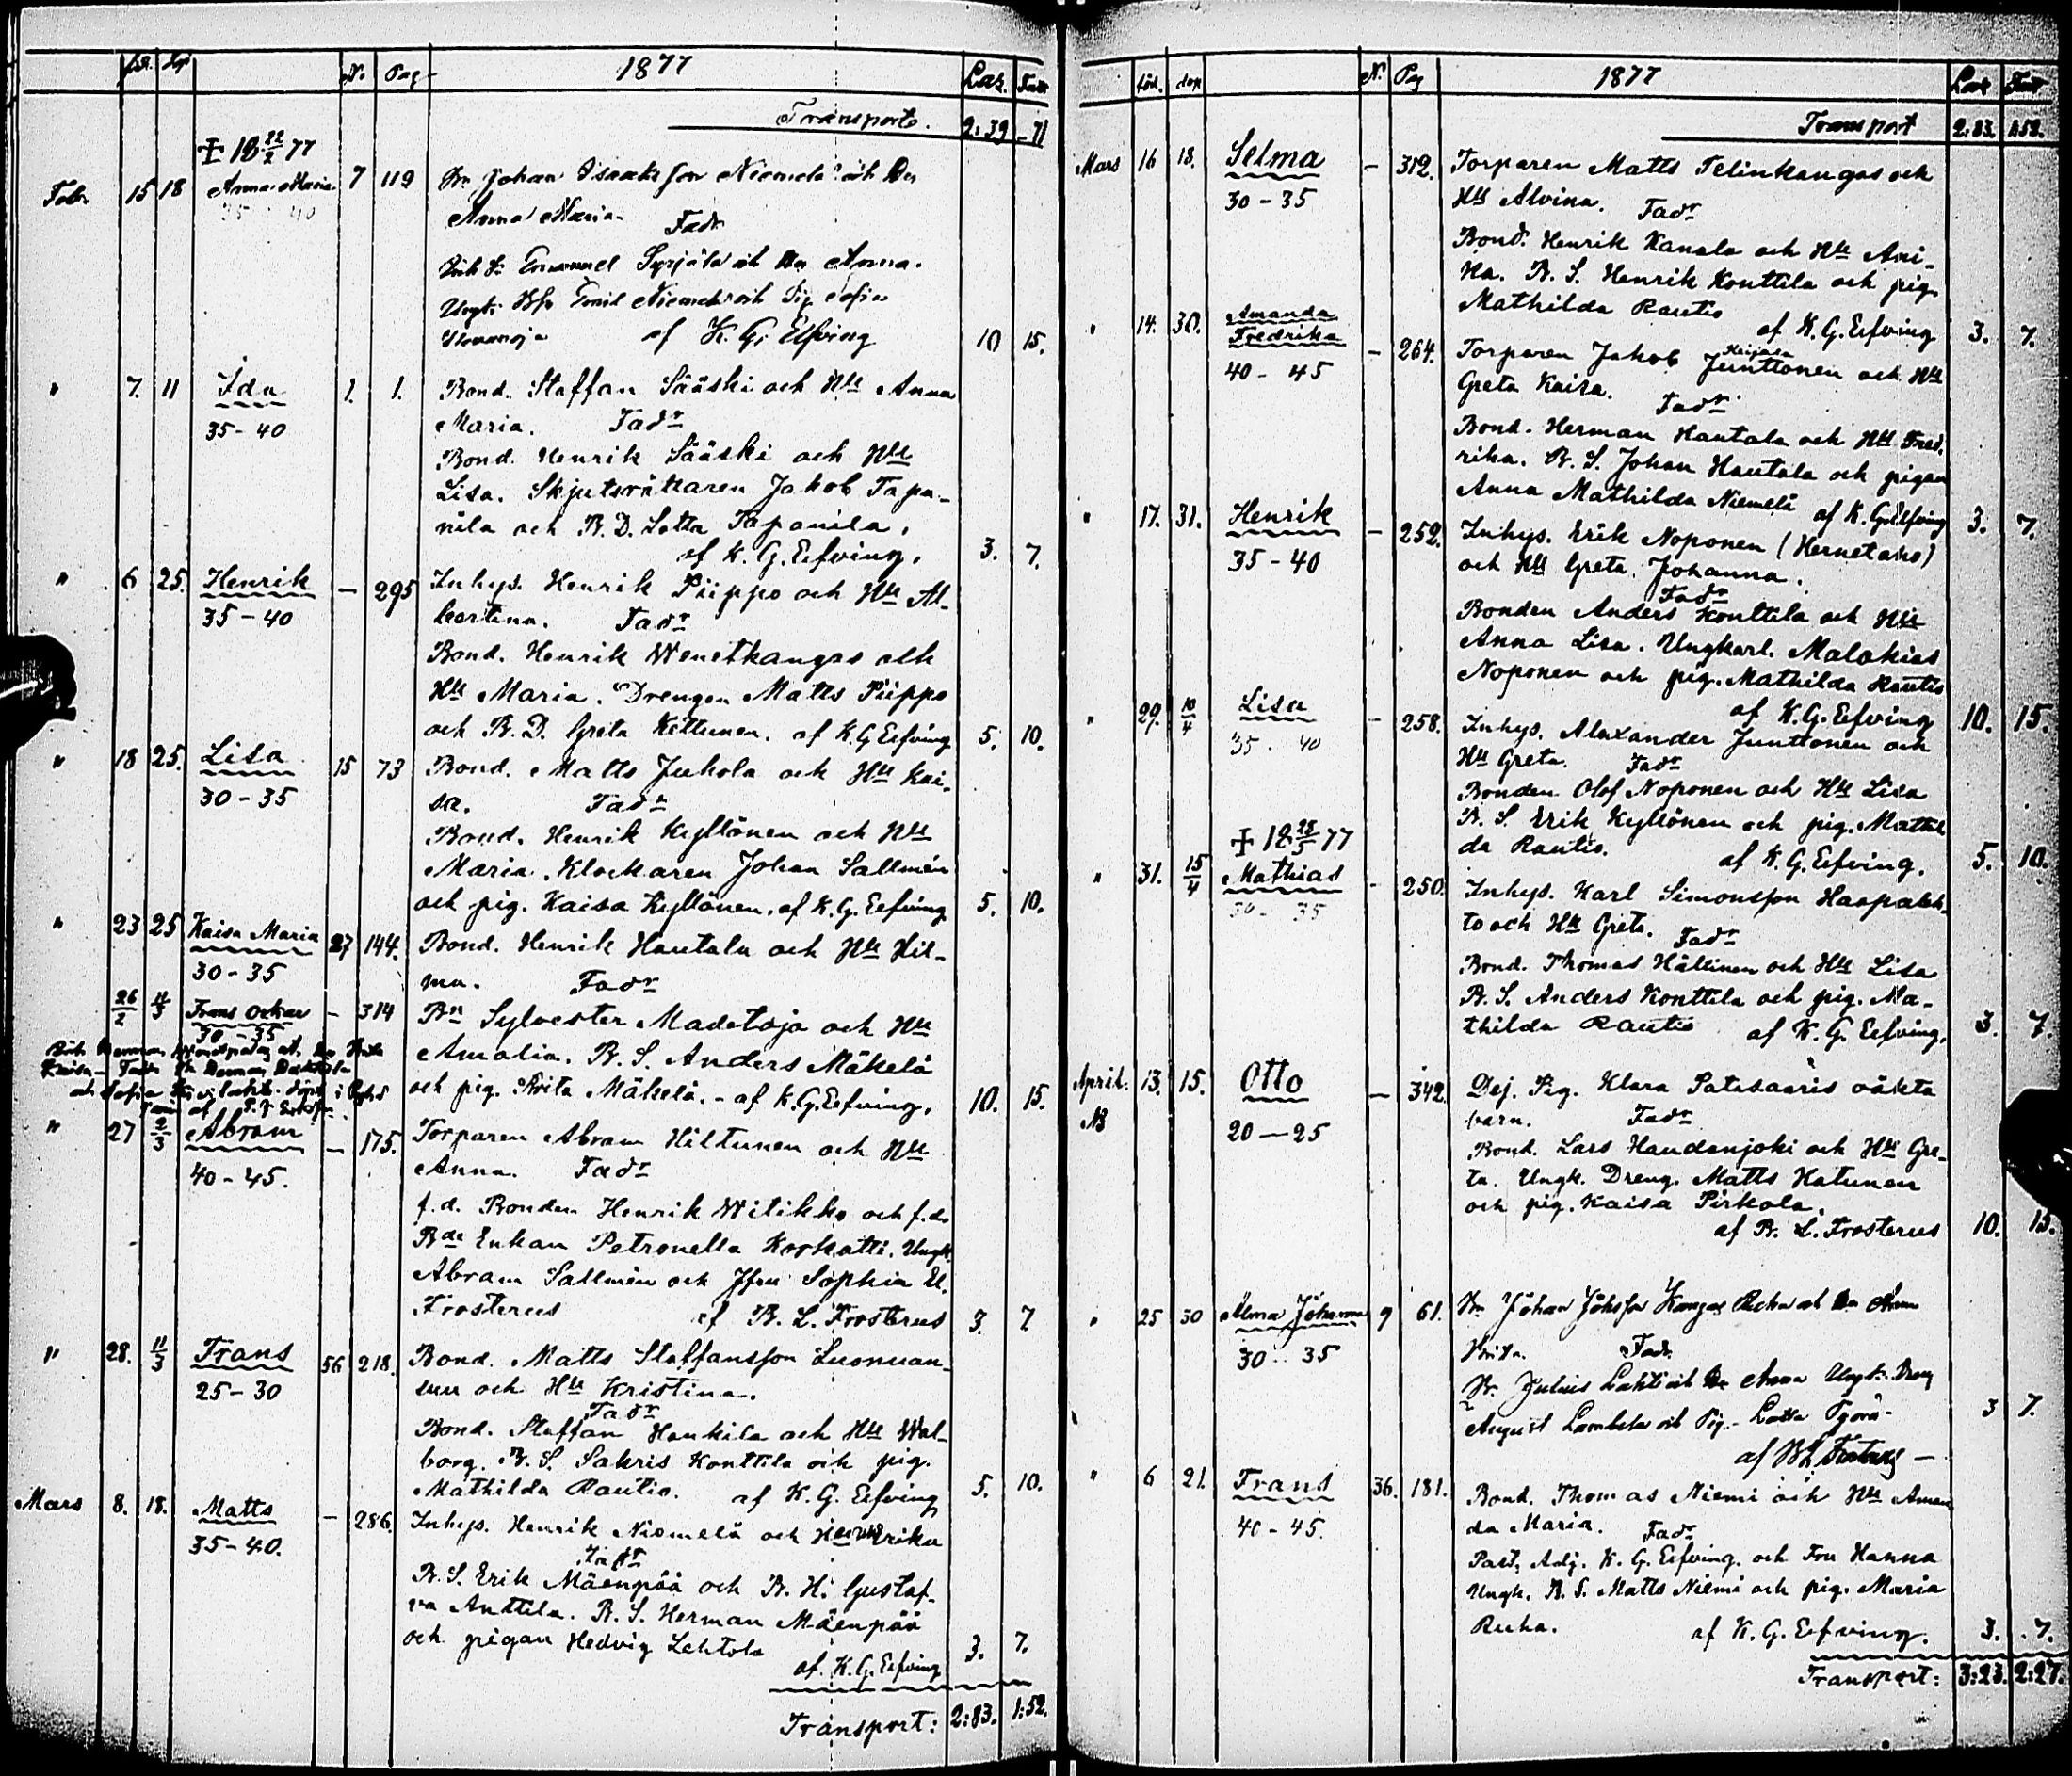 1877
No Pag
Las. Fad
Transport. 2:39 -71
+ 18 22/2 77
Feb. 15 18 Anna Maria 7 119 Bn Johan Isaaksson Niemelä och Hu
Anna Maria.
Fadr
Emanuel Syrjälä och Hu Anna.
Niemelä och Pig Sofia
af K. G. Elfving 10 15.
" 7. 11 Ida 1. 1. Bond. Staffan Sääski och Hu Anna
35-40 Maria. Fadr
Bond. Henrik Sääski och Hu
Lisa. Skjutsrättaren Jakob Tapa-
nila och B. D. Lotta Tapanila.
af K. G. Elfving. 3. 7.
" 6 25. Henrik — 295 Inhys. Henrik Piippo och Hu Al-
35-40 bertina. Fadr
Bond. Henrik Wenetkangas och
Hu Maria. Drengen Matts Piippo
och B. D. Greta Kettunen. af K. G Elfving 5. 10.
" 18 25. Lisa 15 73 Bond. Matts Jukola och Hu Kai-
30-35 sa. Fadr
Bond. Henrik Kyllönen och Hu
Maria. Klockaren Johan Sallmén
och pig. Kaisa Kyllönen. af K. G. Elfving 5. 10.
" 23 25 Kaisa Maria 27 144. Bond. Henrik Hautala och Hu Hil-
30-35 ma. Fadr
26/2 11/3 Frans Oskar - 314 Bn Sylvester Madetoja och Hu
30-35 Amalia. B. S. Anders Mäkelä
och pig. Brita Mäkelä. - af K. G. Elfving. 10. 15.
" 27 2/3 Abram — 175. Torparen Abram Hiltunen och Hu
40-45. Anna. Fadr
f. d. Bonden Henrik Witikko och f. d.
Bde Enkan Petronella Korkatti. Ungk.
Abram Sallmén och Jfru Sophia El.
Frosterus af B. L. Frosterus 3. 7.
" 28. 11/3 Frans 56 218. Bond. Matts Staffansson Luonuan-
25-30 suu och Hu Kristina.
Fadr
Bond. Staffan Haukila och Hu Wal-
borg. B. S. Sakris Konttila och pig.
Mathilda Rautio. af K. G. Elfving 5. 10.
Mars 8. 18. Matts — 286. Inhys. Henrik Niemelä och Hu Ulrika
35-40. Fadr
B. S. Erik Mäenpää och B. H. Gustaf-
va Anttila. B. S. Herman Mäenpää
och pigan Hedvig Lehtola
af K. G. Elfving 3. 7.
Transport: 2:83. 1:52.
född. döp N. Pag 1877
Transport 2:83. 1:52.
Mars 16 18. Selma — 312. Torparen Matts Telinkangas och
30-35 Hu Alvina. Fadr
Bond. Henrik Kanala och Hu Ani-
ka. B. S. Henrik Konttila och pig.
Mathilda Rautio
af K. G. Elfving 3. 7.
" 14. 30. Amanda Fredrika — 264. Torparen Jakob Junttonen och Hu
40-45 Greta Kaisa. Fadr
Bond. Herman Hautala och Hu Fred-
rika. B. S. Johan Hautala och pigan
Anna Mathilda Niemelä af K. G. Elfving 3. 7.
" 17. 31. Henrik — 252. Inhys. Erik Noponen (Hernetaho)
35-40 och Hu Greta Johanna.
Fadr
Bonden Anders Konttila och Hu
Anna Lisa. Ungkarl. Malakias
Noponen och pig. Mathilda Rautio
af K. G. Elfving 10. 15.
" 29. 10/4 Lisa — 258. Inhys. Alexander Junttonen och
35 40 Hu Greta. Fadr
Bonden Olof Noponen och Hu Lisa
B. S. Erik Kyllönen och pig. Mathil
da Rautio. af K. G. Elfving. 5. 10.
+ 18 25/5 77
" 31. 15/4 Mathias — 250. Inhys. Karl Simonsson Haapaleh-
30-35 to och Hu Greta. Fadr
Bond. Thomas Hällinen och Hu Lisa
B. S. Anders Konttila och pig. Ma-
thilda Rautio af K. G. Elfving. 3. 7
April. 13. 15. Otto — 342. Dej. Pig. Klara Patasaaris oäkta
NB 20—25 barn. Fadr
Bond. Lars Haudanjoki och Hu Gre-
ta. Ungk. Dreng. Matts Hatunen
och pig. Kaisa Pirkola.
af B. L. Frosterus 10. 15.
" 25 30 Alma Johanna 9 61. Bn Johan Johsson Kangas Ruha och Hu Anna
30 35 Brita. Fadr.
Bn Julius Lahti och Hu Anna Ungk. Dreng
August Lambela och Pig. Lotta Pyörä- 3 7.
af B L Frosterus —
" 6 21. Frans 36. 181. Bond. Thomas Niemi och Hu Aman
40-45. da Maria. Fadr
Past. Adj. K. G. Elfving. och Fru Hanna
Ungk. B. S. Matts Niemi och pig. Maria
Ruha. af K. G. Elfving. 3. 7.
Transport: 3:23. 2:27.